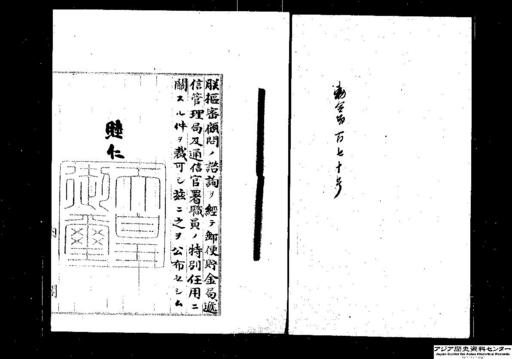 勅令第百七十号
朕枢密顧問ノ諮詢ヲ経テ郵便貯金局逓
信管理局及通信官署職員ノ特別任用ニ
関スル件ヲ裁可シ茲ニ之ヲ公布セシム
睦仁
天皇御璽
アジア歴史資料センター
Japan Center for Asian Historical Records